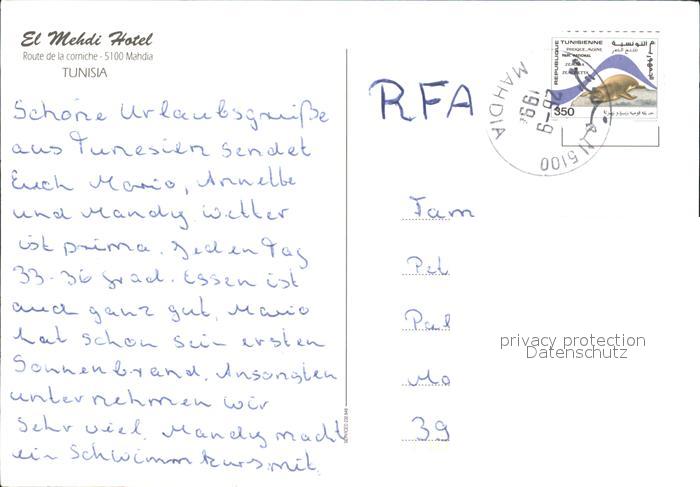 El Mehdi Hotel
Route de la corniche - 5100 Mahdia
TUNISIA
Schöne Urlaubsgrüße
aus Tunesien sendet
Euch Mario, Annette
und Mandy. Wetter
ist prima. Jeden Tag
33-36 grad. Essen ist
auch ganz gut. Mario
hat schon sein ersten
Sonnenbrand. Ansonsten
unternehmen wir
sehr viel. Mandy macht
ein Schwimmkurs mit.
RFA
REPUBLIQUE TUNISIENNE
PHOQUE MOINE
350
MAHDIA
5100
Fam
Pet
Pal
Mo
39
privacy protection
Datenschutz